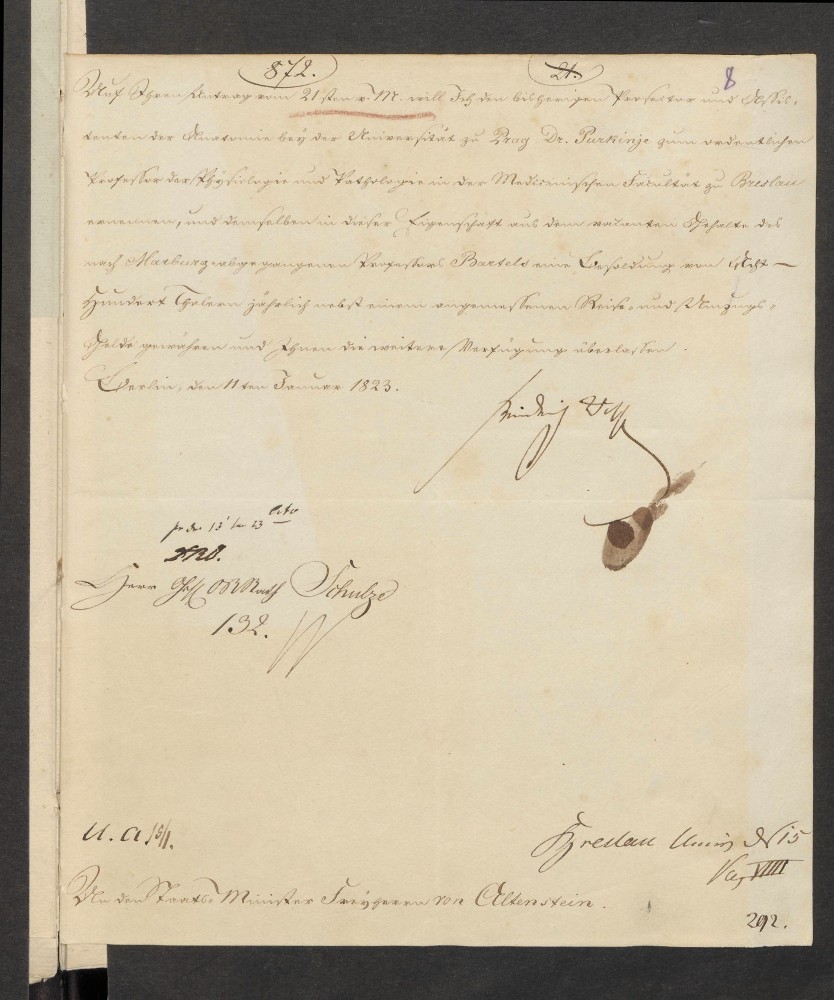 872.
21.
8
Auf Ihren Antrag vom 21sten v. M. will Ich den bisherigen Prosector und Assis-
tenten der Anatomie bey der Universität zu Prag Dr. Purkinje zum ordentlichen
Professor der Physiologie und Pathologie in der Medicinischen Facultät zu Breslau
ernennen, und demselben in dieser Eigenschaft aus dem vacanten Gehalte des
nach Marburg abgegangenen Professors Bartels eine Besoldung von Acht
Hundert Thalern jährlich nebst einem angemessenen Reise- und Umzugs-
Gelde gewähren und Ihnen die weitere Verfügung überlassen.
Berlin, den 11ten Januar 1823.
Herr Schulze
132.
U. A. 15/1.
Breslau 15
VIIII
An den Staats-Minister Freyherrn von Altenstein.
292.